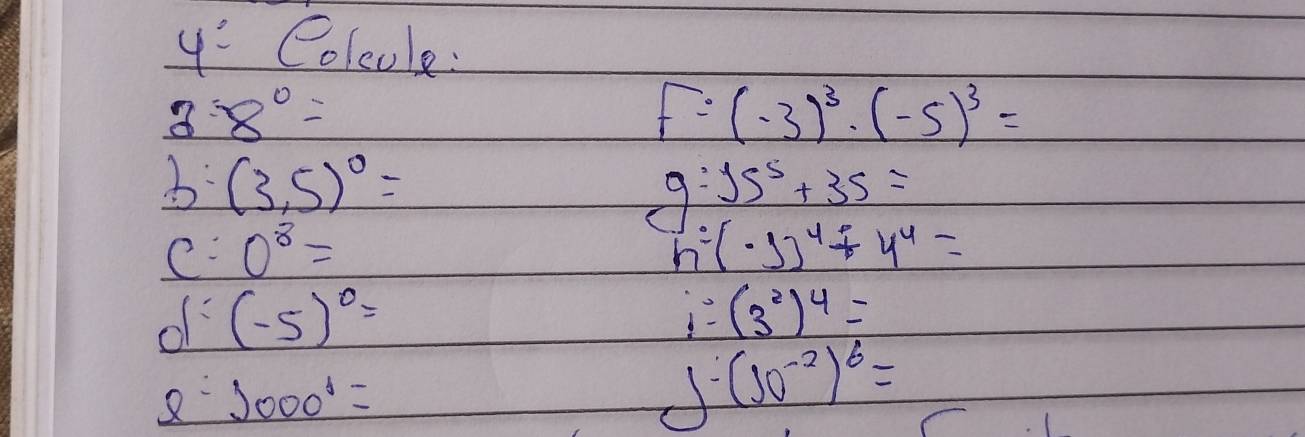 4- Calcule:
a- 8⁰ =
b- (3,5)⁰ =
c- 0⁸ =
d- (-5)⁰ =
e- 1000¹ =
F- (-3)³ . (-5)³ =
g- 15⁵ + 35 =
h- (-1)⁴ + 4⁴ =
i- (3²)⁴ =
j- (10⁻²)⁶ =